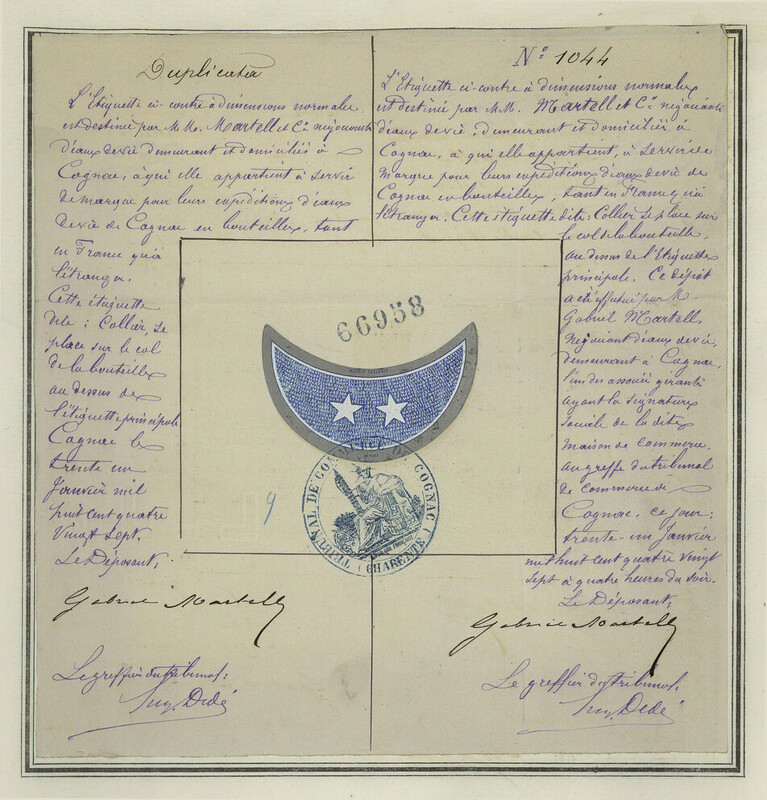 Duplicata
L'Etiquette ci-contre à dimensions normales
est destinée par M.M. Martell et Cie négociants
d'eaux de vie demeurant et domiciliés à
Cognac, à qui elle appartient à servir
de marque pour leurs expéditions d'eaux
de vie de Cognac en bouteilles, tant
en France qu'à
l'étranger.
Cette étiquette
dite : Collier, se
place sur le col
de la bouteille
au dessus de
l'étiquette principale
Cognac le
trente un
Janvier mil
huit cent quatre
vingt sept.
Le Déposant,
Gabriel Martell
Le greffier du tribunal:
Dedé
No 1044
L'Etiquette ci-contre à dimensions normales
est destinée par M.M. Martell et Cie négociants
d'eaux de vie, demeurant et domiciliés à
Cognac, à qui elle appartient, à servir de
marque pour leurs expéditions d'eaux de vie de
Cognac en bouteilles, tant en France qu'à
l'étranger. Cette étiquette dite : Collier se place sur
le col de la bouteille,
au dessus de l'Etiquette
principale. Ce dépôt
a été effectué par M.
Gabriel Martell,
négociant d'eaux de vie,
demeurant à Cognac,
l'un des associés gérants
ayant la signature
sociale de la dite
maison de commerce.
au greffe du tribunal
de commerce de
Cognac, ce jour:
trente-un Janvier
mil huit cent quatre vingt
sept à quatre heures du soir.
Le Déposant,
Gabriel Martell
Le greffier du tribunal,
Dedé
66958
TRIBUNAL DE COMMERCE DE COGNAC
(CHARENTE)
9